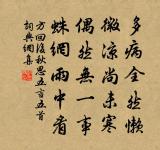 多病全然懒
微凉尚未寒
偶然无一事
蛛网雨中看
方回后秋思五言五首
词典网集